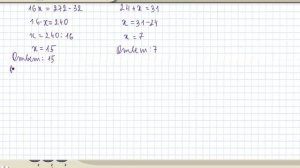 16x = 272-32
14·x=240
x=240:16
x=15
Ответ: 15
24+x=31
x=31-24
x=7
Ответ: 7